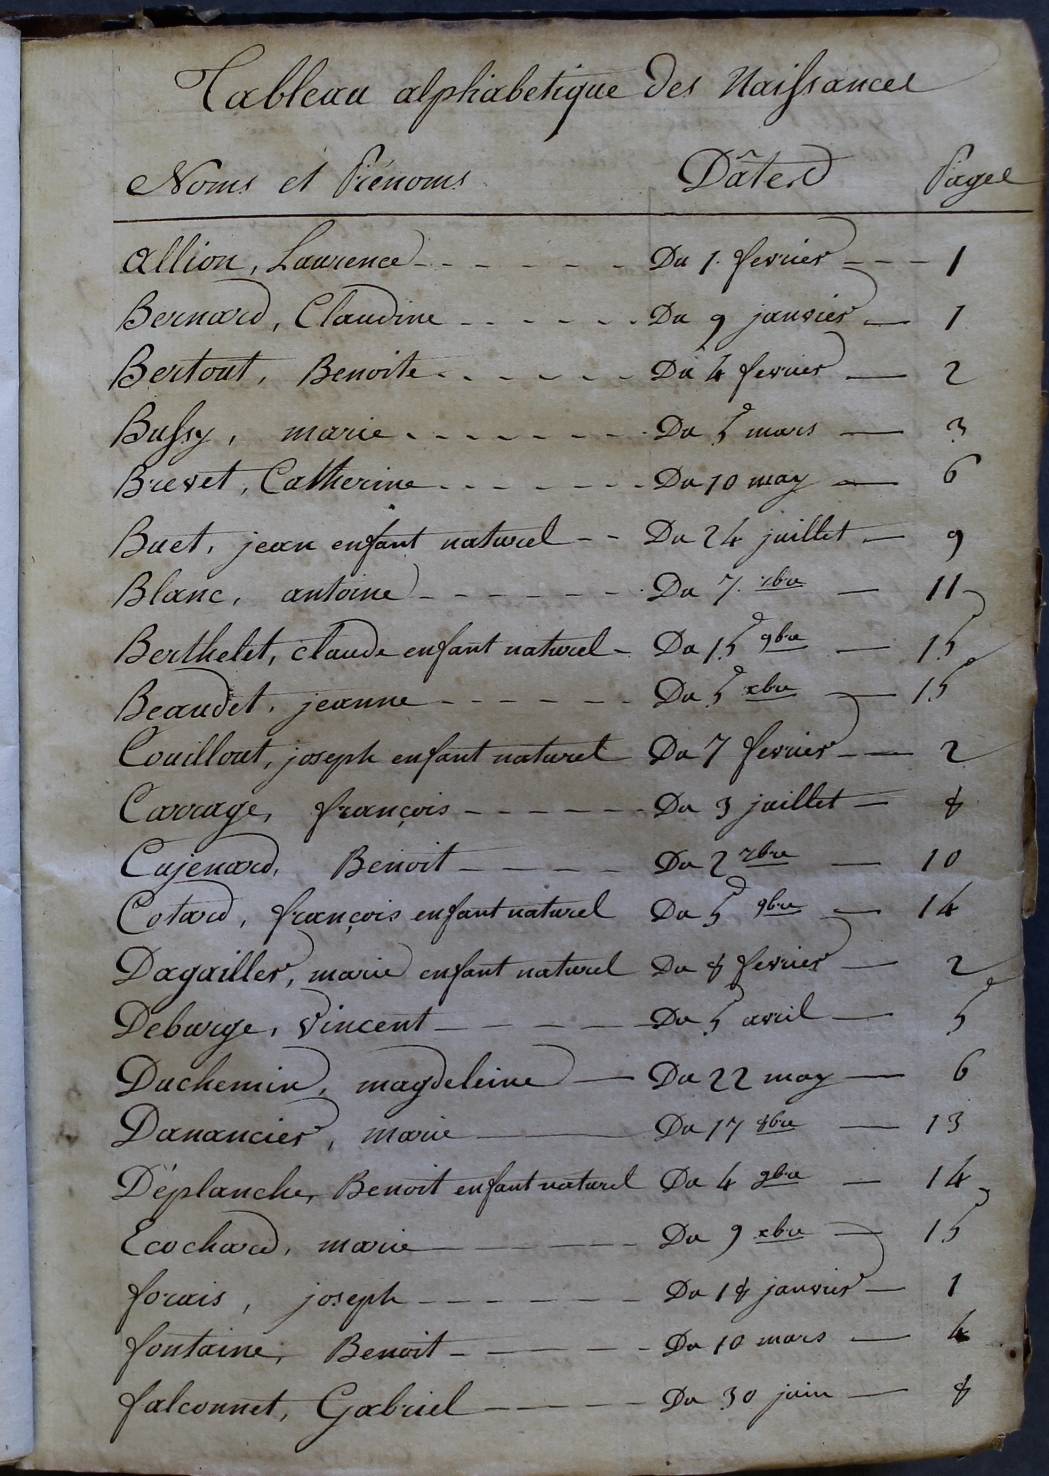 Tableau alphabetique des Naissances
Noms et Prénoms Dâtes Pages
Allion, Laurence Du 1. fevrier 1
Bernard, Claudine Du 9 janvier 1
Bertout, Benoite Du 4 fevrier 2
Bussy, marie Du 5 mars 3
Brevet, Catherine Du 10 may 6
Buet, jean enfant naturel Du 24 juillet 9
Blanc, antoine Du 7. 7bre 11
Berthelet, claude enfant naturel Du 15 9bre 15
Beaudet, jeanne Du 5 xbre 15
Couillout, joseph enfant naturel Du 7 fevrier 2
Carrage, françois Du 3 juillet 8
Cajenard, Benoit Du 2 7bre 10
Cotard, françois enfant naturel Du 5 9bre 14
Dagailler, marie enfant naturel Du 8 fevrier 2
Debarge, Vincent Du 5 avril 5
Duchemin, magdeleine Du 22 may 6
Danancier, marie Du 17 8bre 13
Déplanche, Benoit enfant naturel Du 4 9bre 14
Ecochard, marie Du 9 xbre 15
forais, joseph Du 18 janvier 1
fontaine, Benoit Du 10 mars 4
falconnet, Gabriel Du 30 juin 8